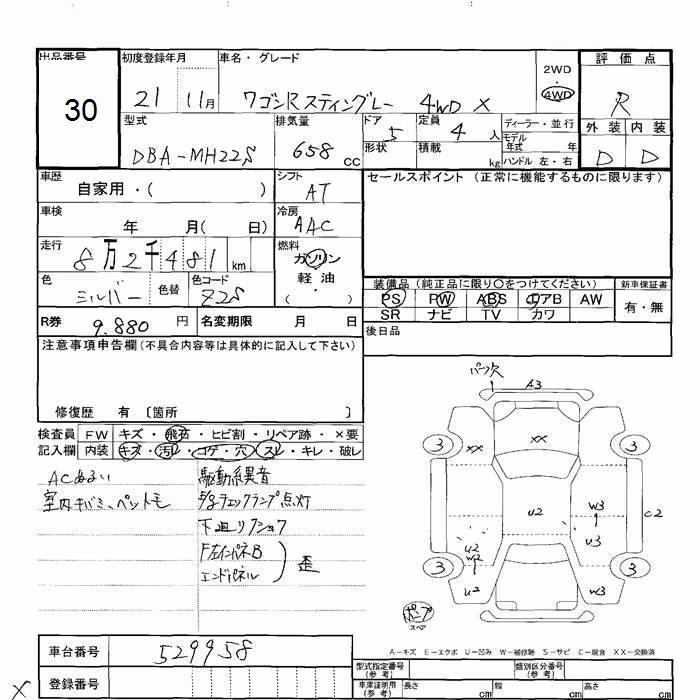 出品番号 初度登録年月 車名・グレード 2WD 評価点
30 21 11月 ワゴンRスティングレー 4WD X ・4WD R
型式 排気量 ドア 5 定員 4 人 ディーラー・並行 外装 内装
DBA-MH22S 658 CC 形状 積載 kg モデル年式 年 ハンドル 左・右 D D
車歴 自家用・( ) シフト AT セールスポイント (正常に機能するものに限ります)
車検 年 月( 日) 冷房 AAC
走行 8万2千481 km 燃料 ガソリン 軽油 ・( )
色 シルバー 色替 色コード Z2S
装備品 (純正品に限り〇をつけてください) 新車保証書
PS PW ABS エアB AW 有・無
SR ナビ TV カワ
R券 9.880 円 名変期限 月 日 後日品
注意事項申告欄(不具合内容等は具体的に記入して下さい)
修復歴 有 〔箇所 〕
検査員 FW キズ・飛石・ヒビ割・リペア跡・×要
記入欄 内装 キズ・汚レ・コゲ・穴・スレ・キレ・破レ
ACあるい 駆動系異音
室内キバミ、ペットモ
下廻りクショウ
F左インパネB
エンドパネル 歪
パーツ欠 A3
XX XX
3 3
U2 W3 C2
U2 U3
W2
3 3
U2 W3
ポンプ
スペア
A-キズ E-エクボ U-凹み W-補修跡 S-サビ C-腐食 XX-交換済
車台番号 529958 型式指定番号(参考) 類別区分番号(参考)
登録番号 車庫証明用(参考) 長さ cm 幅 cm 高さ cm
X